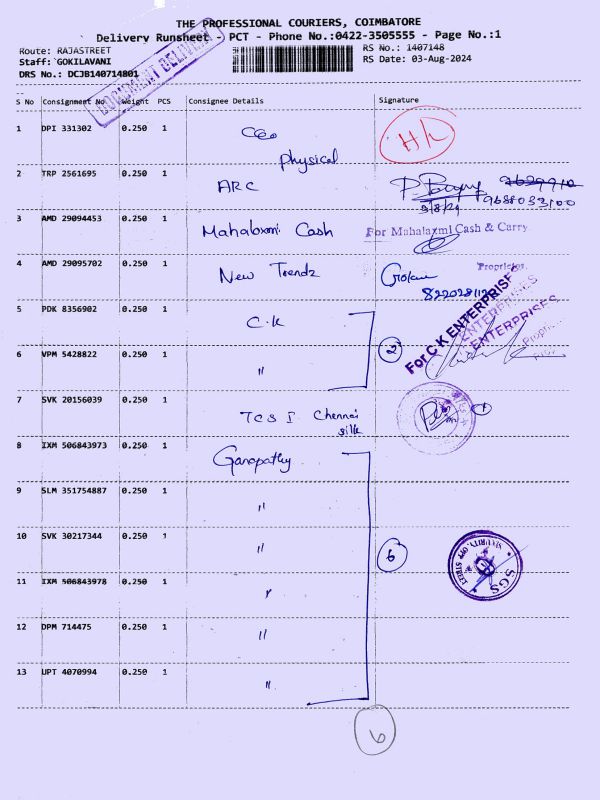 THE PROFESSIONAL COURIERS, COIMBATORE
Delivery Runsheet - PCT - Phone No.:0422-3505555 - Page No.:1
Route: RAJASTREET
RS No.: 1407148
Staff: GOKILAVANI
RS Date: 03-Aug-2024
DRS No.: DCJB140714801
DOCUMENT DELIVERY
S No Consignment No Weight PCS Consignee Details Signature
1 DPI 331302 0.250 1
H/L
Physical
2 TRP 2561695 0.250 1 ARC
3/8/24 9688033100
3 AMD 29094453 0.250 1 Mahalaxmi Cash For Mahalaxmi Cash & Carry
Proprietor
4 AMD 29095702 0.250 1 New Trendz
5 PDK 8356902 0.250 1 C.K
For C K ENTERPRISES
ENTERPRISES
6 VPM 5428822 0.250 1 " 2
7 SVK 20156039 0.250 1 TCS I Chennai
silk
1
8 IXM 506843973 0.250 1 Ganapathy
9 SLM 351754887 0.250 1 "
10 SVK 30217344 0.250 1 " 6
SGS
11 IXM 506843978 0.250 1 "
12 DPM 714475 0.250 1 "
13 UPT 4070994 0.250 1 "
6